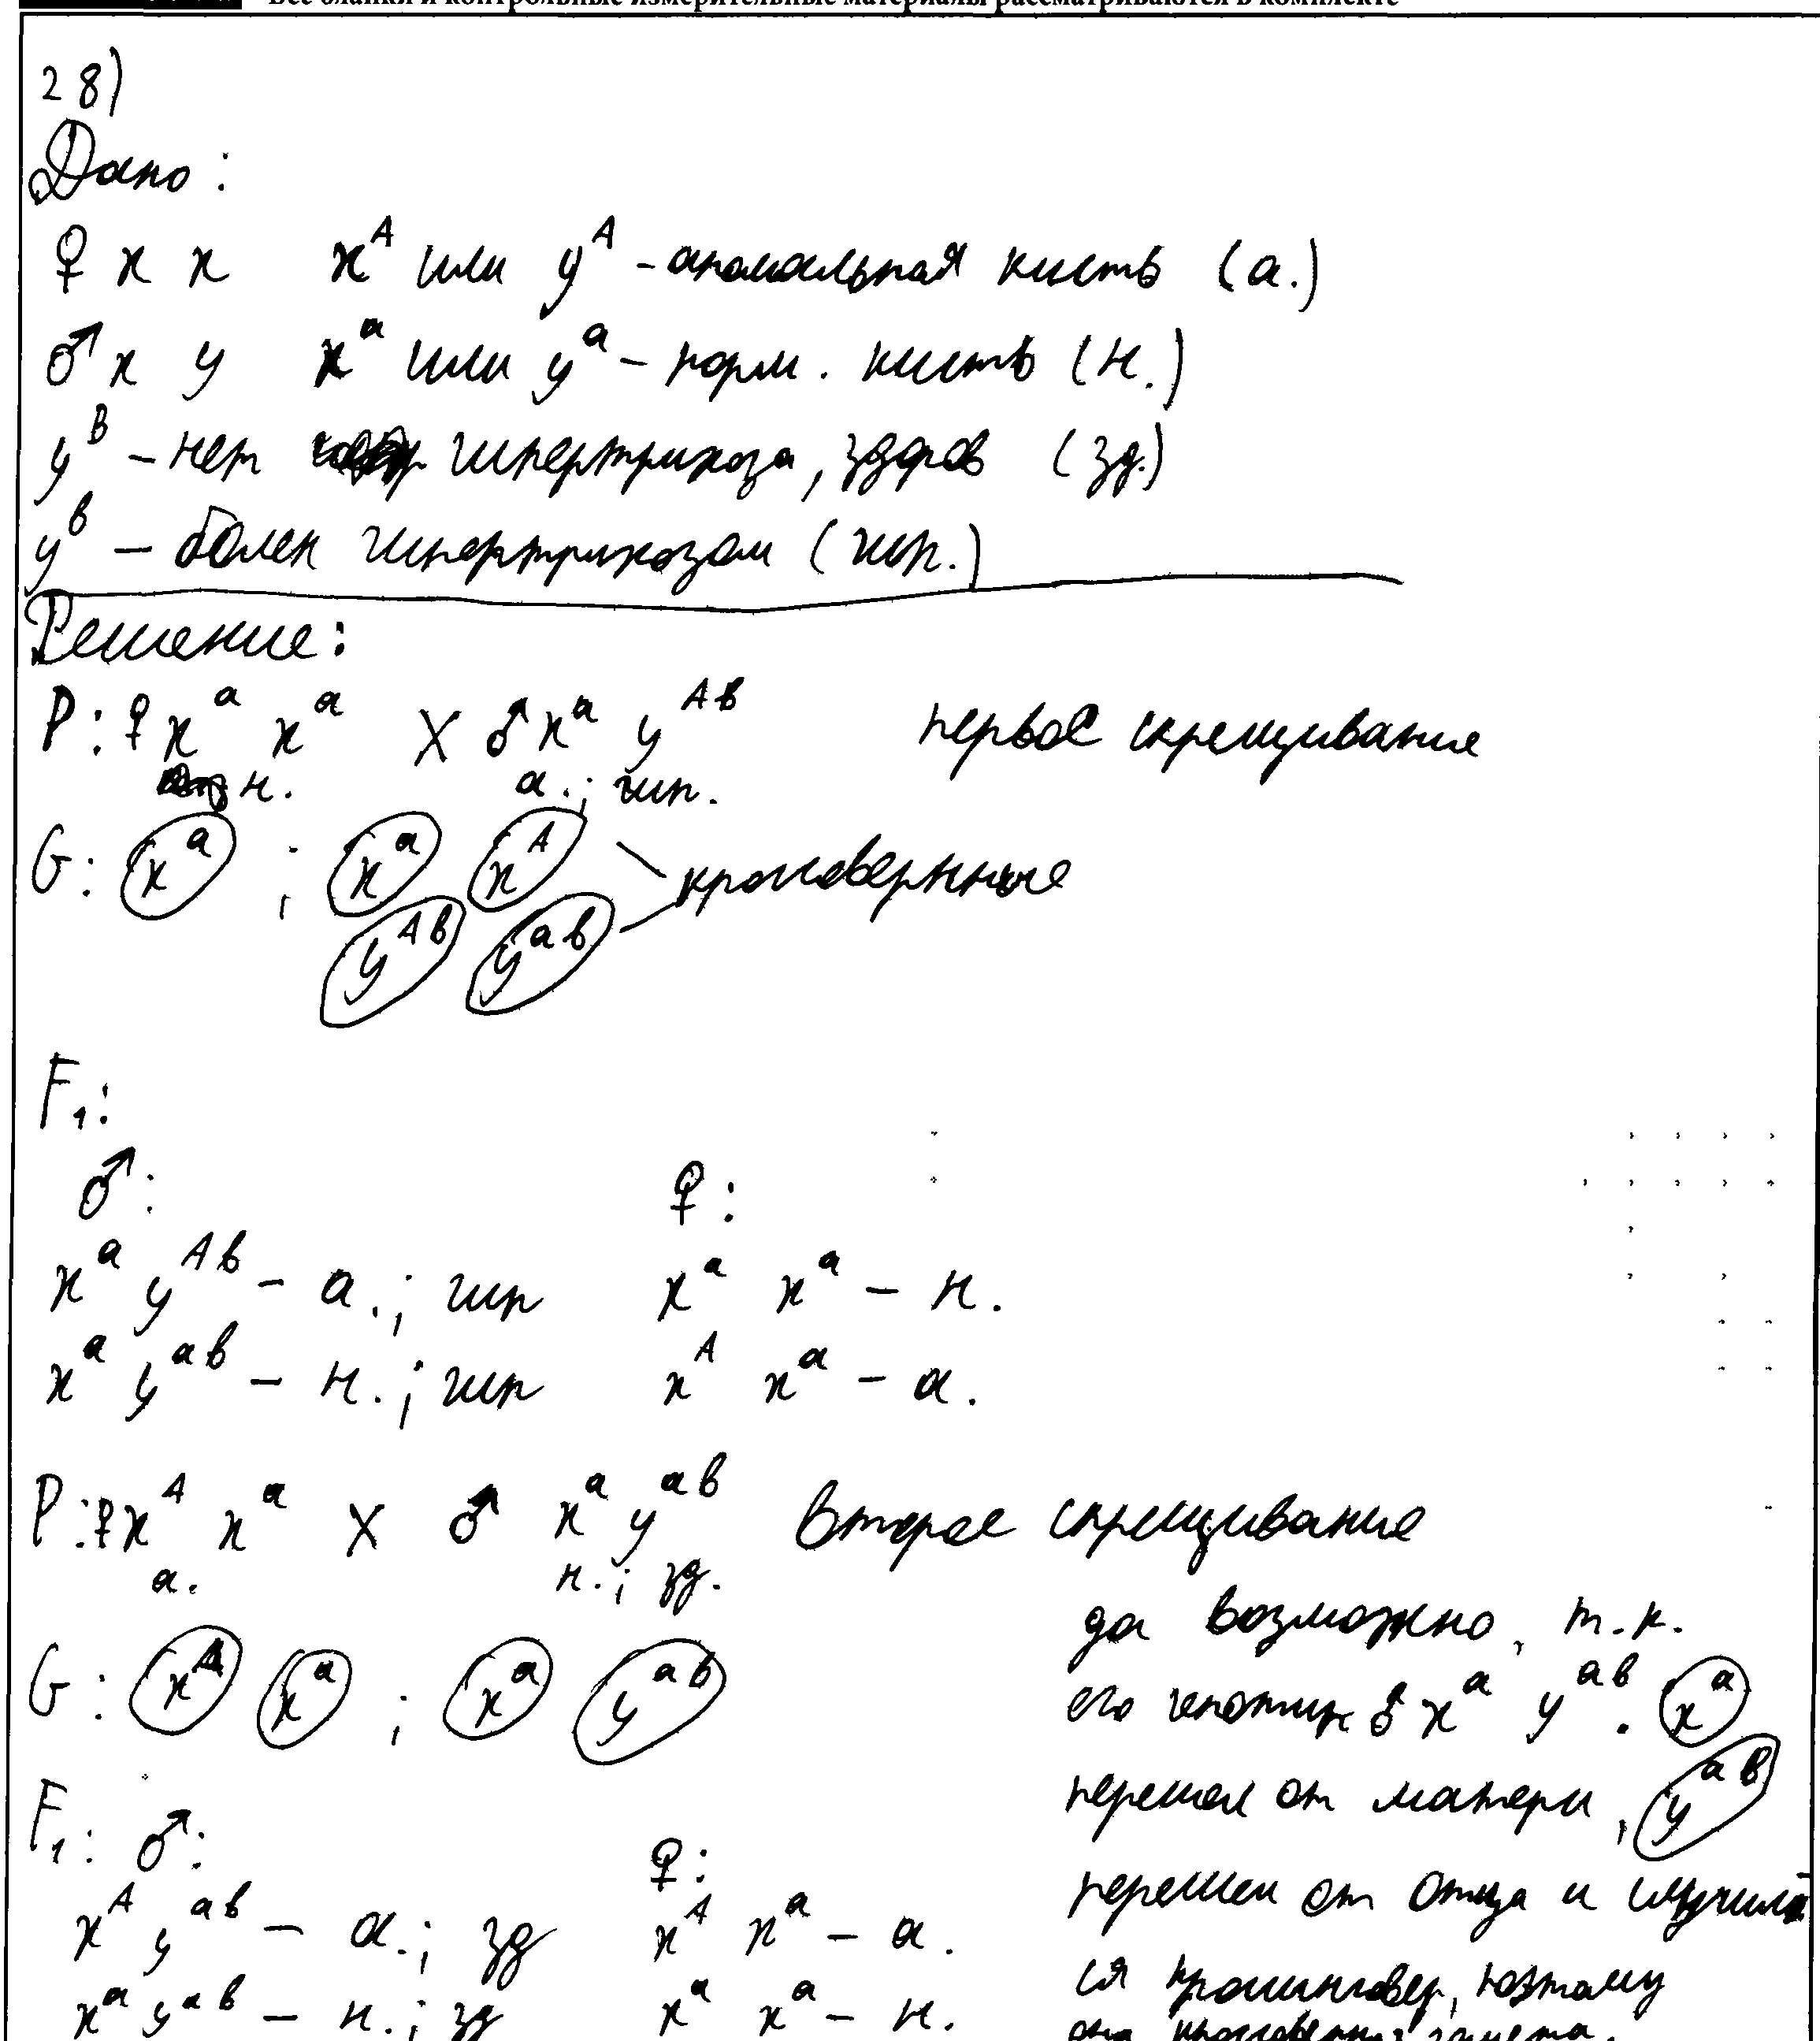 Все бланки и контрольные измерительные материалы рассматриваются в комплекте
28)
Дано:
♀ x x x^A или y^A - аномальная кисть (а.)
♂ x y x^a или y^a - норм. кисть (н.)
y^B - нет гипертрихоза, здоров (зд.)
y^b - болен гипертрихозом (гип.)
Решение:
P: ♀ x^a x^a X ♂ x^a y^Ab первое скрещивание
н. а.; гип.
G: x^a ; x^a x^A кроссоверные
y^Ab y^ab
F₁:
♂: ♀:
x^a y^Ab - а.; гип x^a x^a - н.
x^a y^ab - н.; гип x^A x^a - а.
P: ♀ x^A x^a X ♂ x^a y^aB второе скрещивание
а. н.; зд.
G: x^A x^a ; x^a y^aB
F₁: ♂: ♀:
x^A y^aB - а.; зд x^A x^a - а.
x^a y^aB - н.; зд x^a x^a - н.
да возможно, т.к.
его генотип ♂ x^a y^ab. x^a
перешел от матери, y^ab
перешел от отца и случил
ся кроссинговер, поэтому
она кроссоверная гамета.